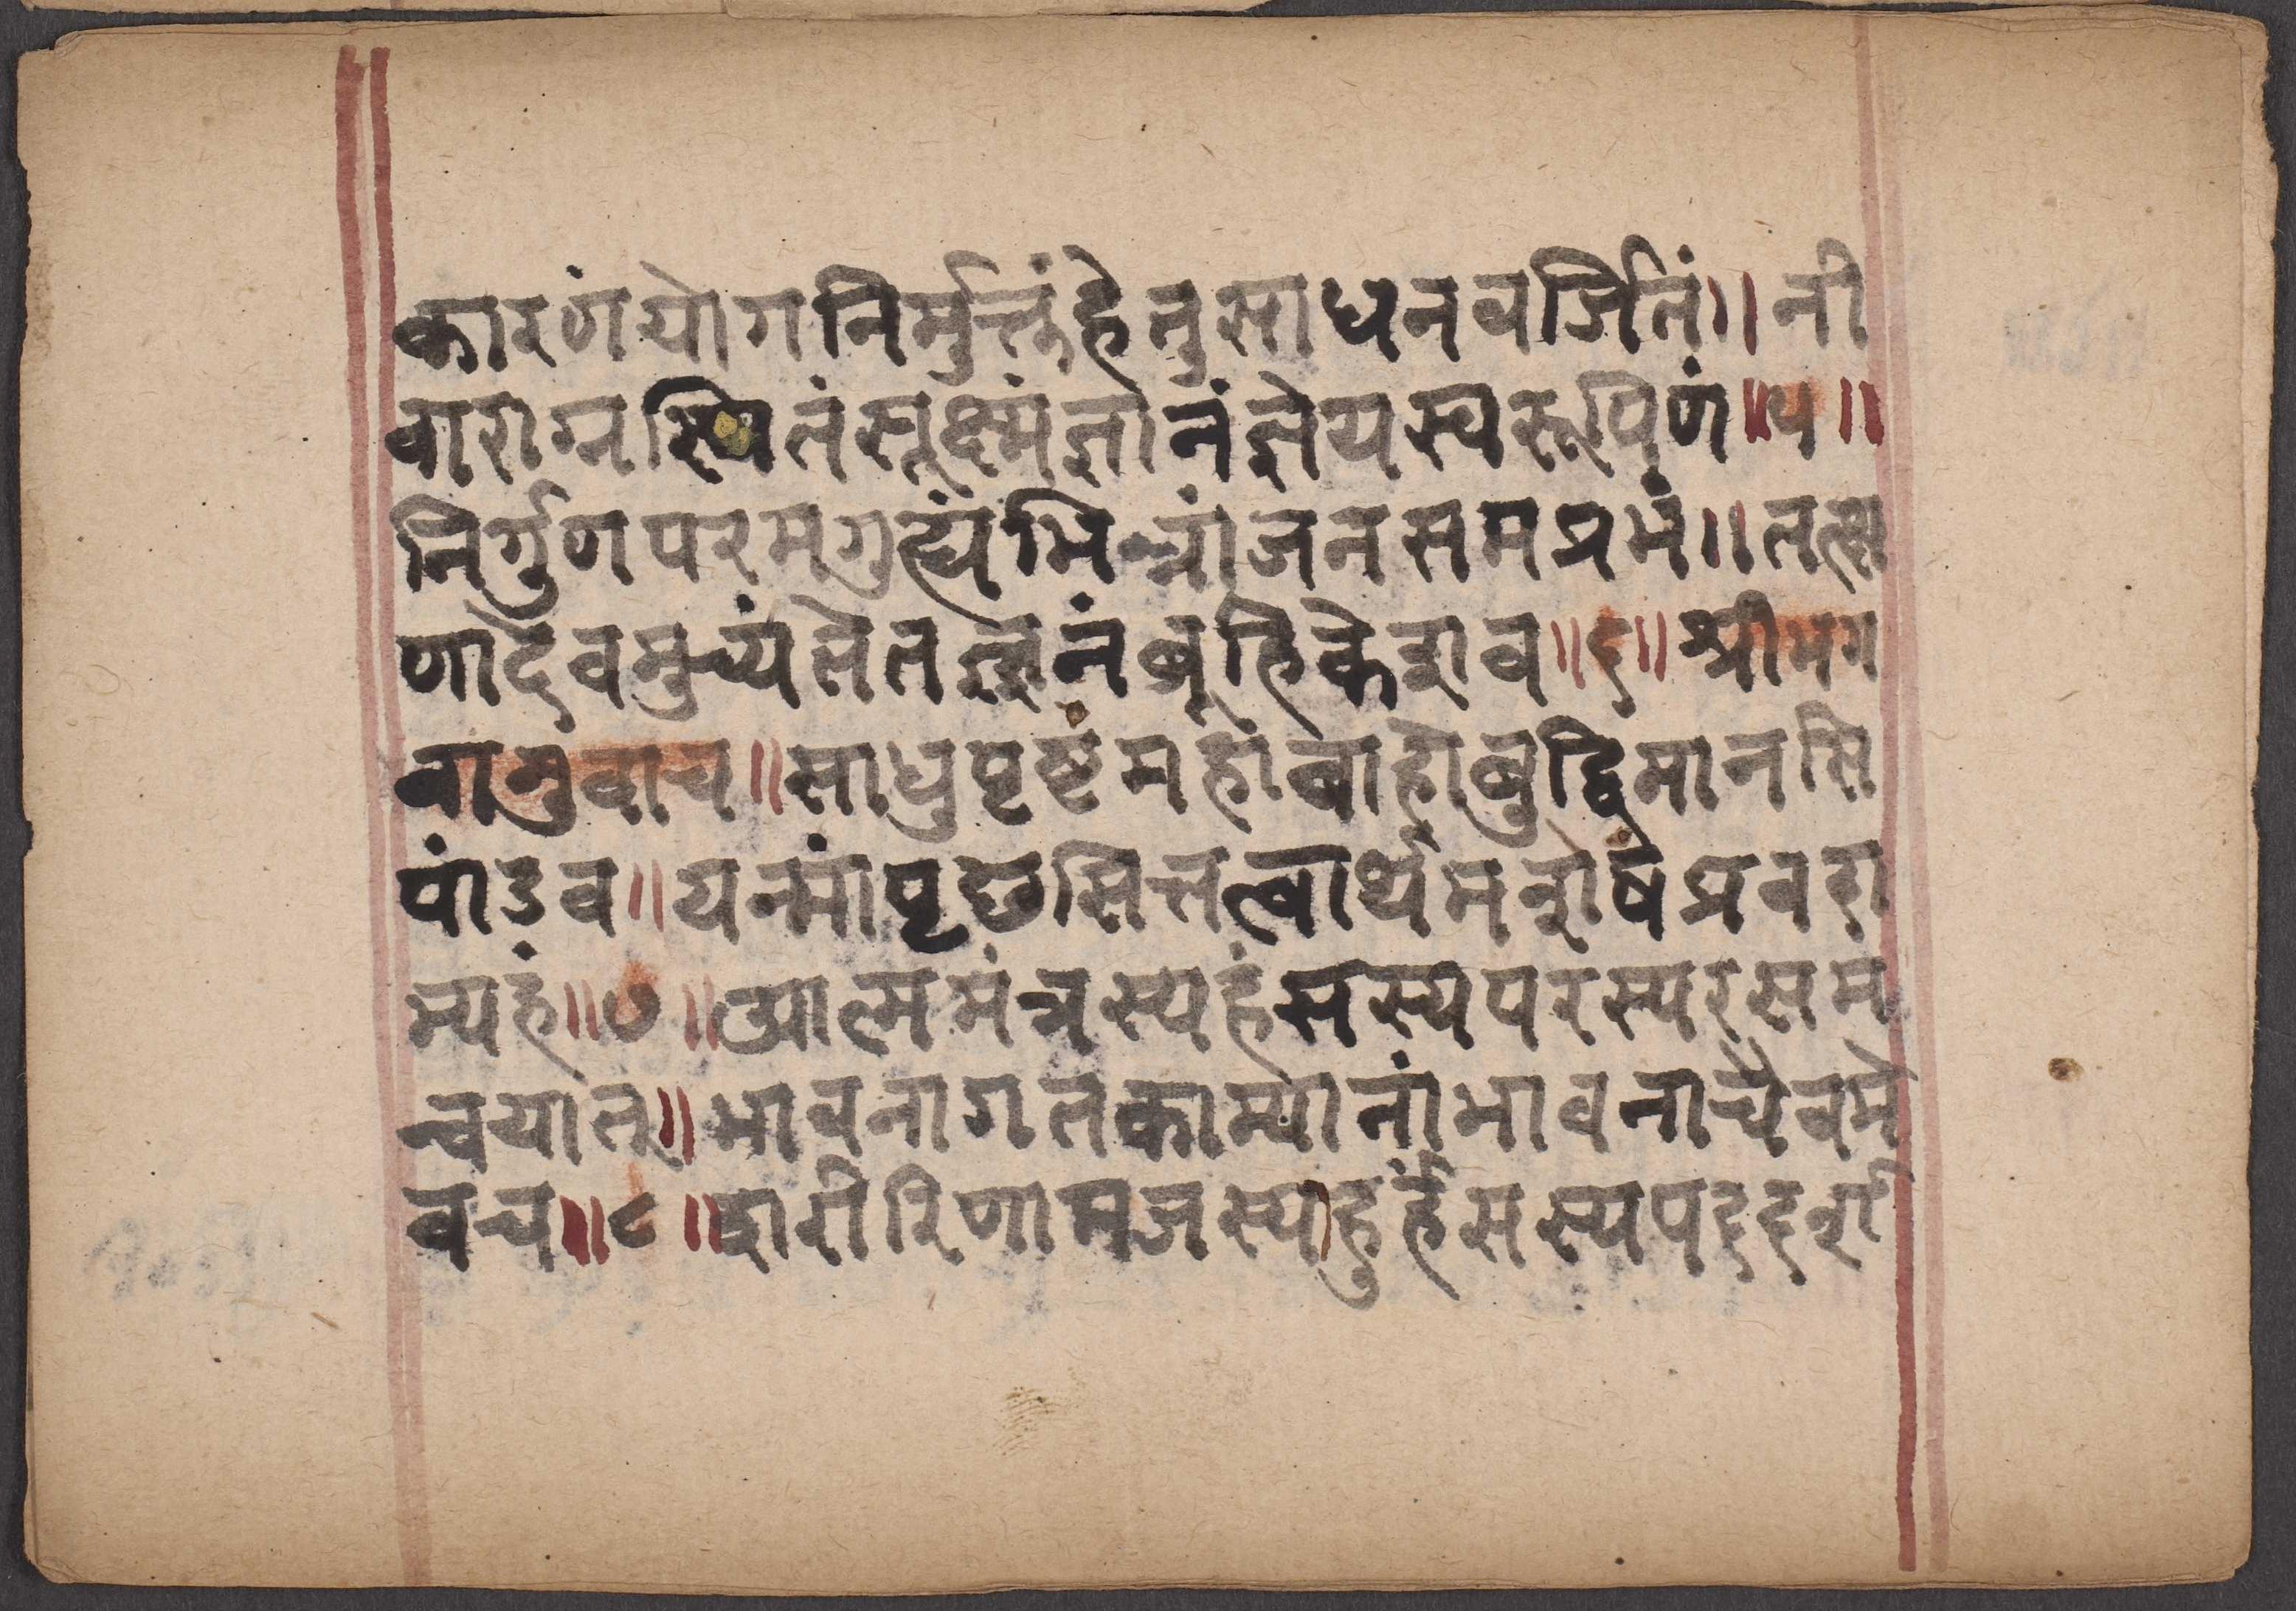 कारणंयोगनिर्मुक्तंहेतुसाधनवर्जितं॥नी
वाराग्रस्थितंसूक्ष्मंज्ञानंज्ञेयस्वरूपिणं॥५॥
निर्गुणपरमगुह्यंभिन्नांजनसमप्रभं॥तत्क्ष
णादेवमुच्यंतेतज्ज्ञानंब्रूहिकेशव॥६॥श्रीभग
वानुवाच॥साधुपृष्टंमहाबाहोबुद्धिमानसि
पांडव॥यन्मांपृछसितत्त्वार्थमशेषंप्रवदा
म्यहं॥७॥आत्ममंत्रस्यहंसस्यपरस्परसम
न्वयात्॥भावनागतकाम्यानांभावनाचैवमे
वच॥८॥शरीरिणामजस्याहुर्हंसस्यपददर्श